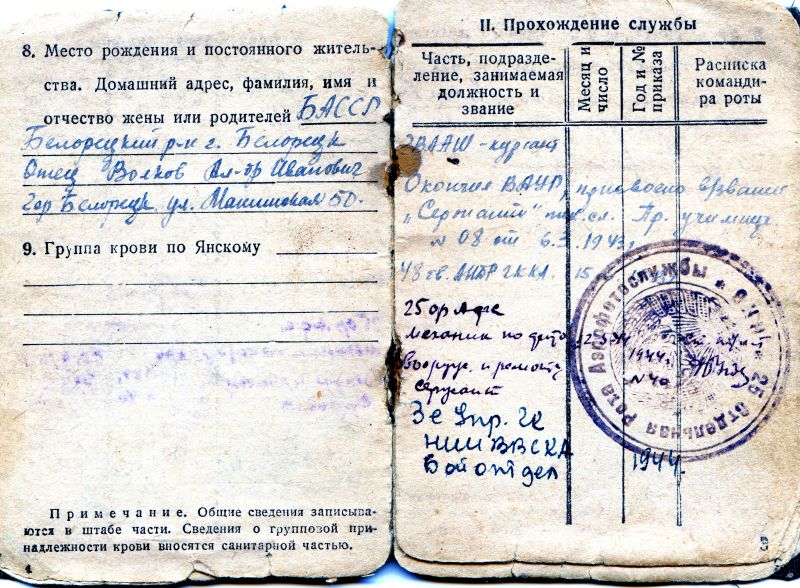 8. Место рождения и постоянного житель-
ства. Домашний адрес, фамилия, имя и
отчество жены или родителей БАССР
Белорецкий р-н г. Белорецк
Отец Волков Ал-др Иванович
Гор Белорецк, ул. 50.
9. Группа крови по Янскому
Примечание. Общие сведения записыва-
ются в штабе части. Сведения о групповой при-
надлежности крови вносятся санитарной частью.
4
II. Прохождение службы
Часть, подразде-
ление, занимаемая
должность и
звание
Месяц и
число
Год и №
приказа
Расписка
команди-
ра роты
курсант
Окончил присвоено в/звание
„Сержант" Пр. училищу
№ 08 от 6. 1943г.
48 гв. 15
25 ор Афс
механик по фото
12
1944г.
вооруж. и ремонту
№ 40
сержант
3е Упр. ГК
НИИ ВВС КА
1944.
25 Отдельная Рота Аэрофотослужбы